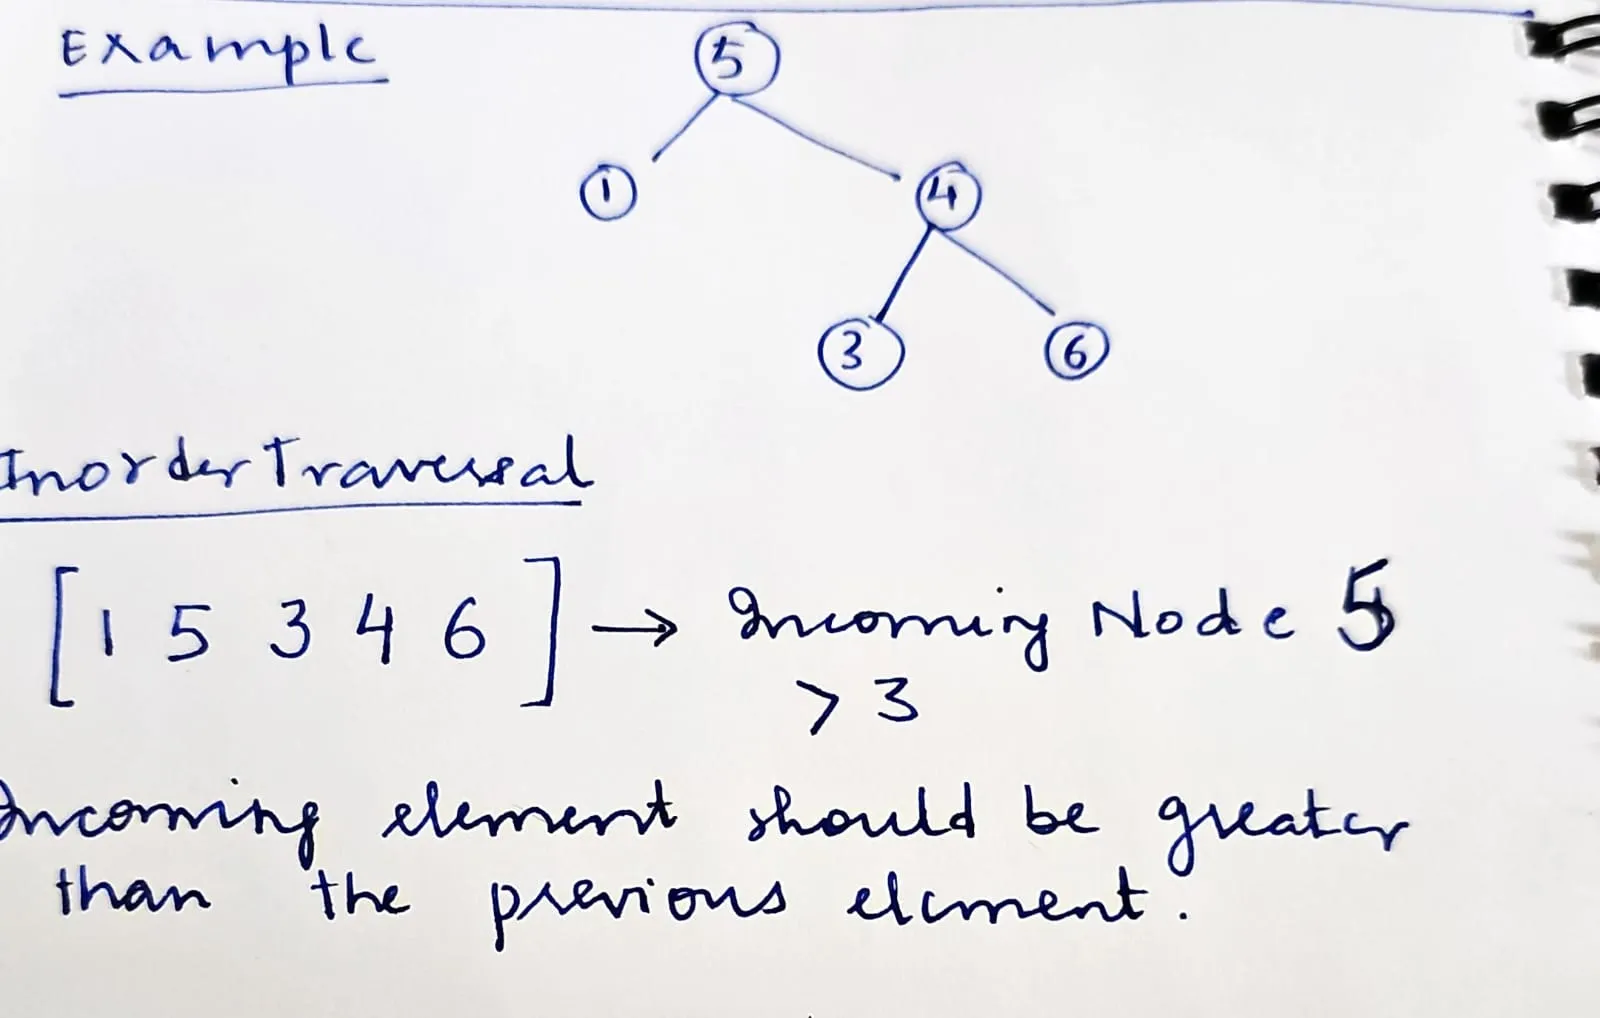 Example
5
1 4
3 6
Inorder Traversal
[1 5 3 4 6] → Incoming Node 5
> 3
Incoming element should be greater
than the previous element.